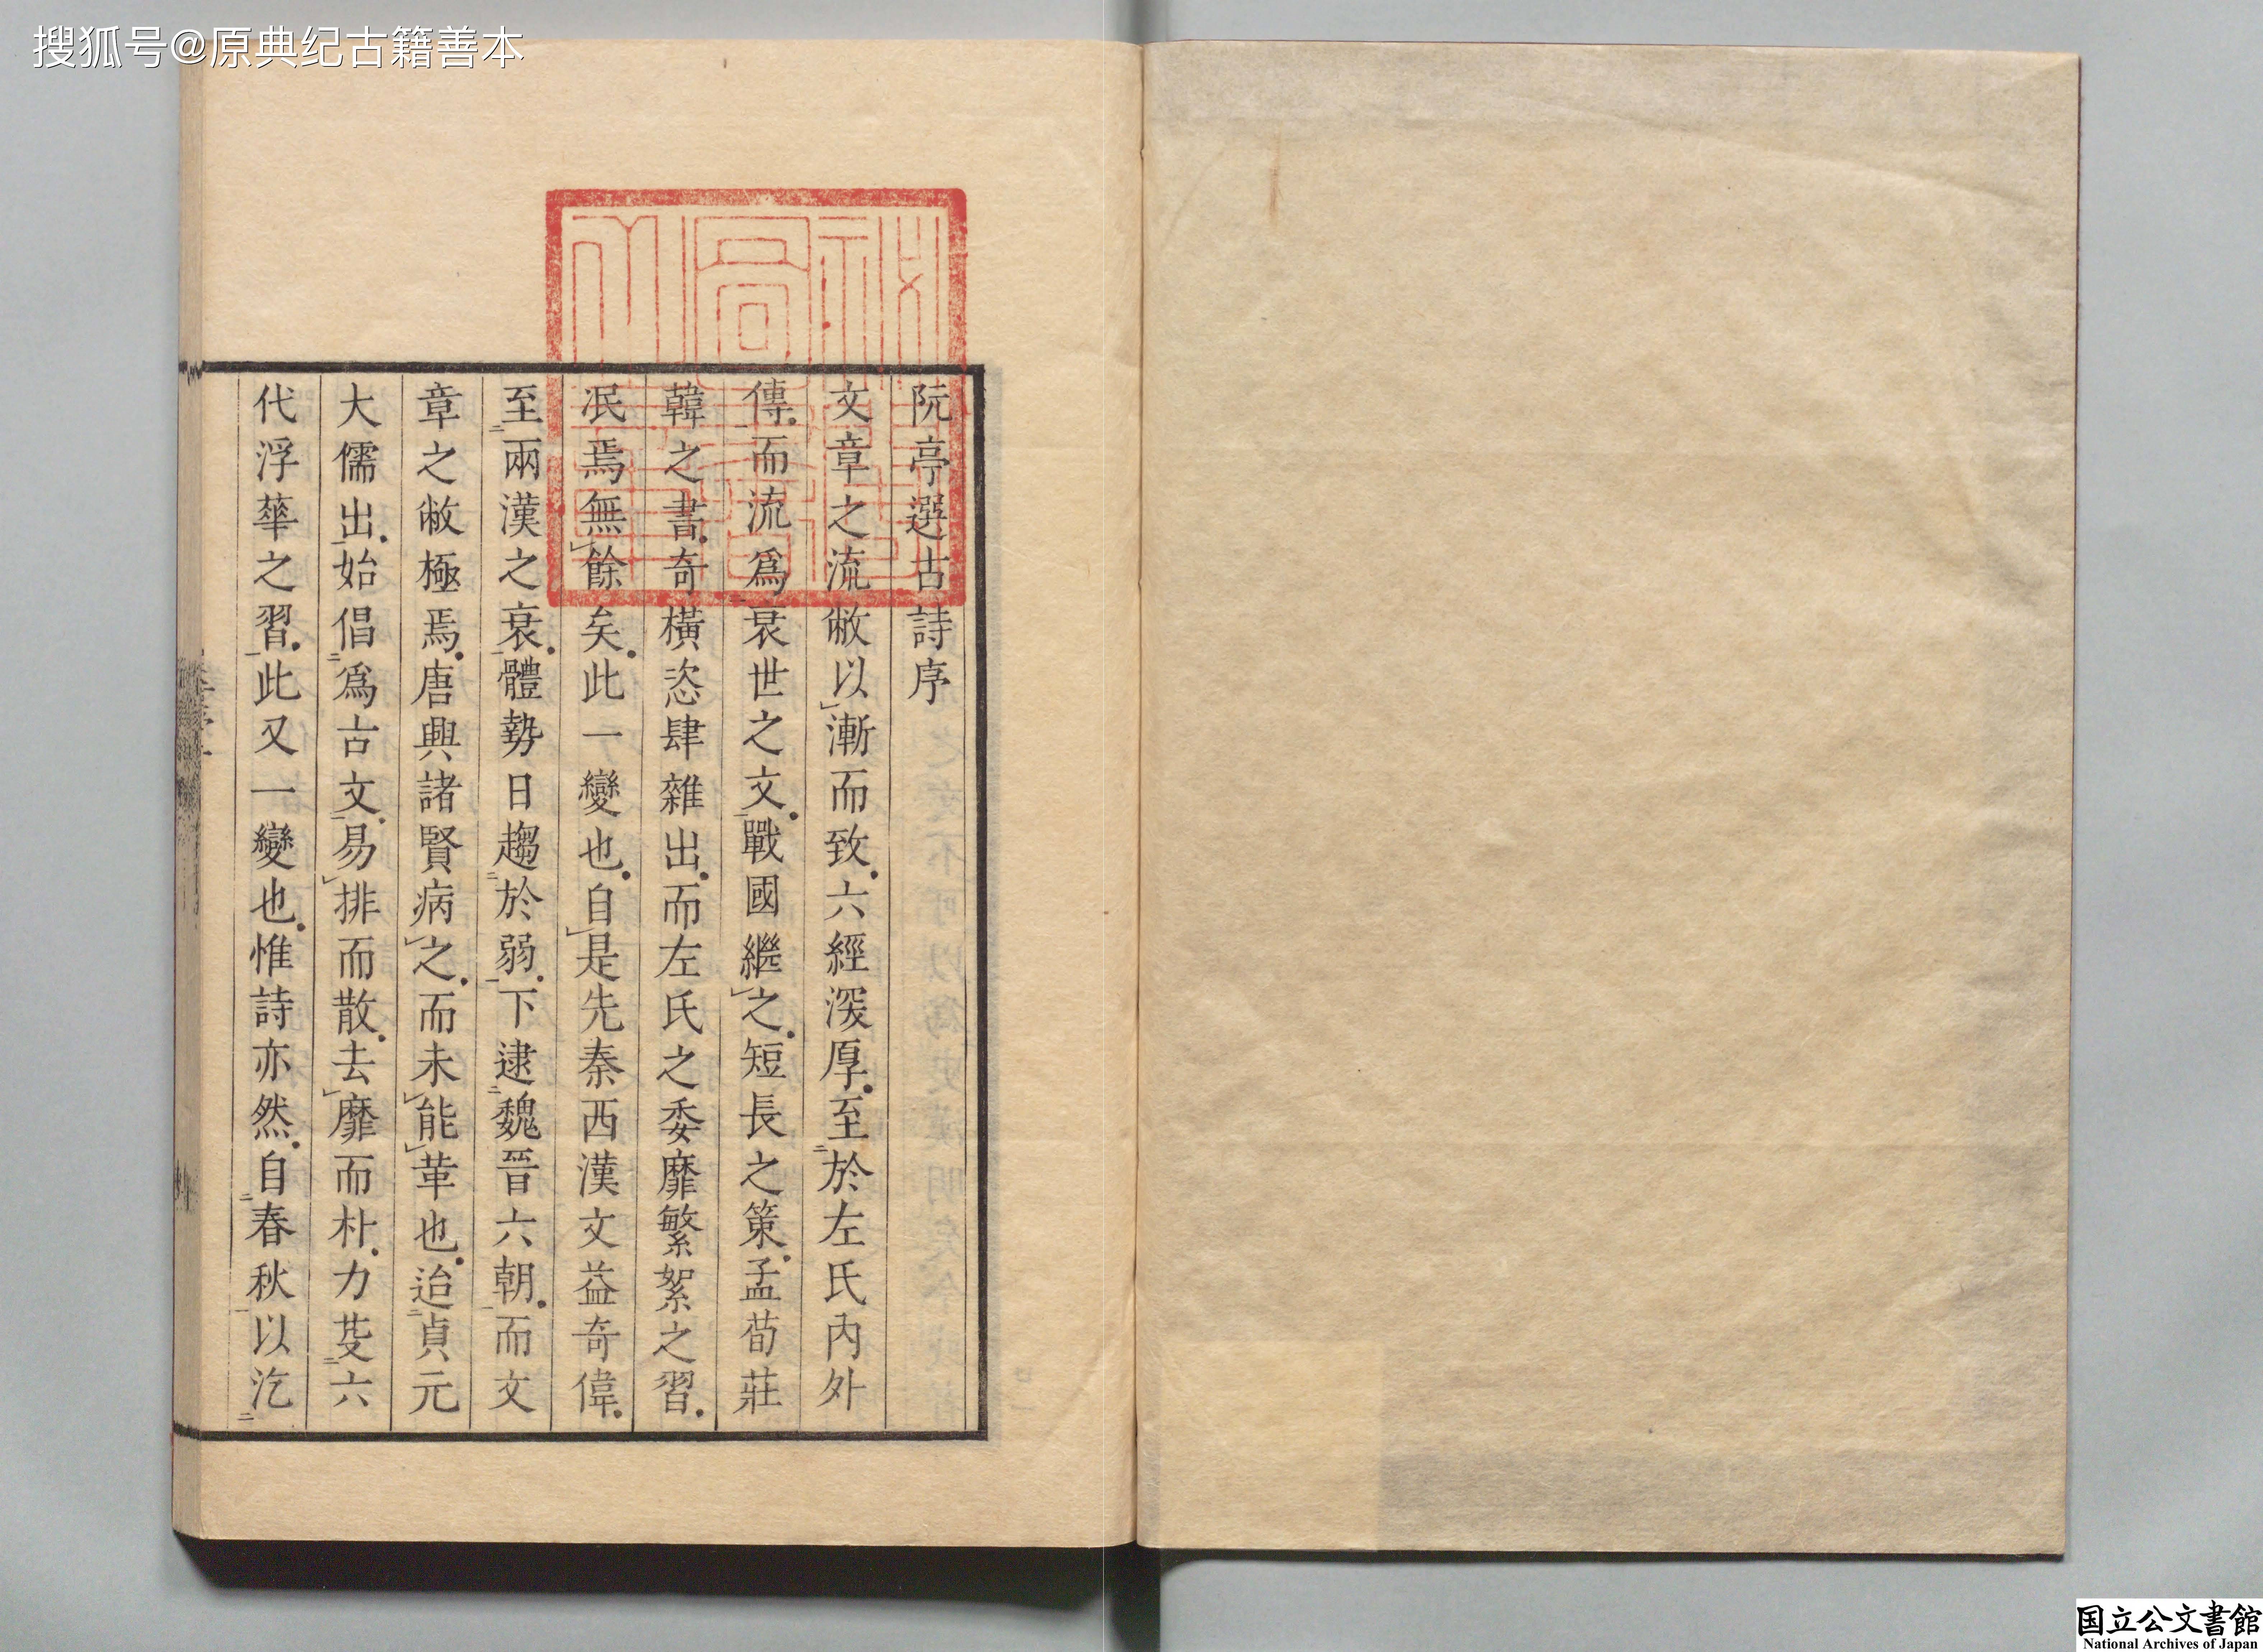 搜狐号@原典纪古籍善本
阮亭選古詩序
文章之流敝以漸而致六經深厚至於左氏內外
傳而流爲衰世之文戰國繼之短長之策孟荀莊
韓之書奇橫恣肆雜出而左氏之委靡繁絮之習
泯焉無餘矣此一變也自是先秦西漢文益奇偉
至兩漢之衰體勢日趨於弱下逮魏晉六朝而文
章之敝極焉唐興諸賢病之而未能革也迨貞元
大儒出始倡爲古文易排而散去靡而朴力芟六
代浮華之習此又一變也惟詩亦然自春秋以汔
国立公文書館
National Archives of Japan